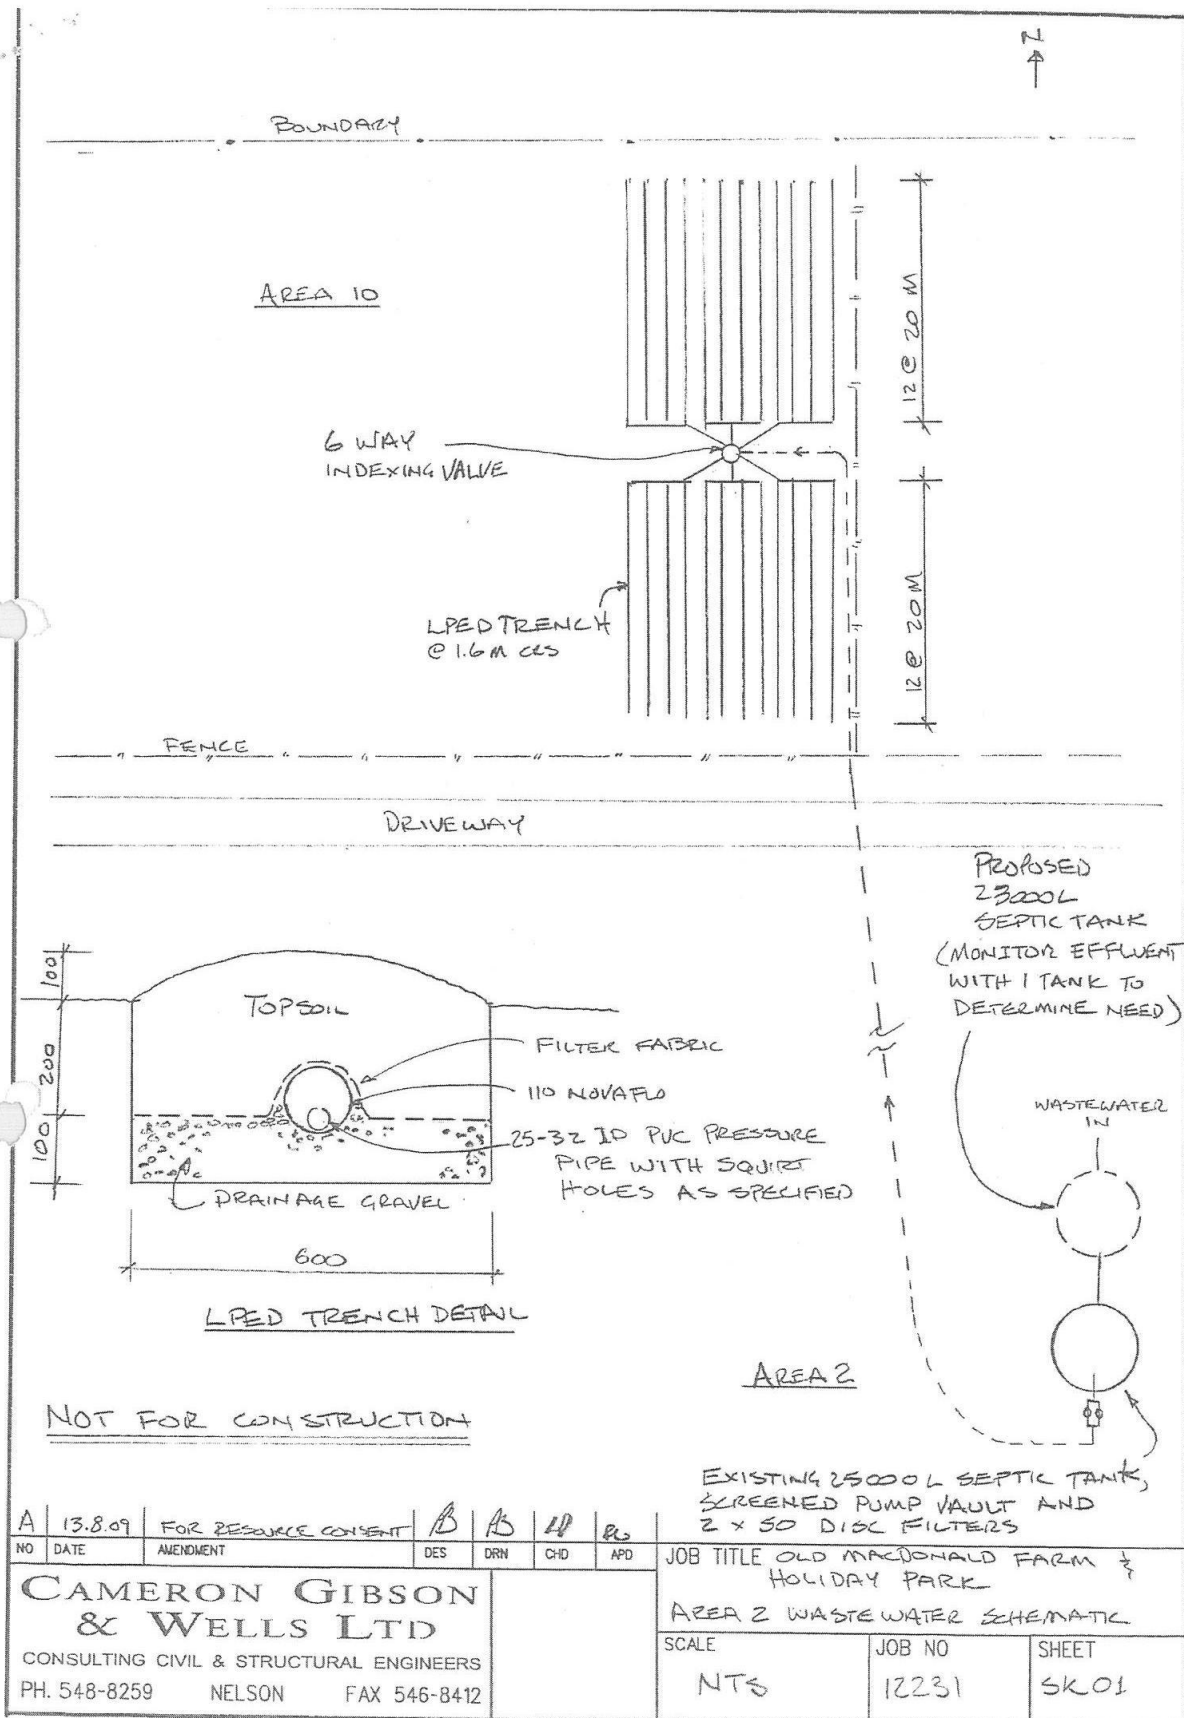 N
BOUNDARY
AREA 10
12 @ 20 M
6 WAY
INDEXING VALVE
LPED TRENCH
@ 1.6M CRS
12 @ 20M
FENCE
DRIVEWAY
PROPOSED
23000L
SEPTIC TANK
(MONITOR EFFLUENT
WITH 1 TANK TO
DETERMINE NEED)
100
200
100
TOPSOIL
FILTER FABRIC
110 NOVAFLO
25-32 ID PVC PRESSURE
PIPE WITH SQUIRT
HOLES AS SPECIFIED
DRAINAGE GRAVEL
600
LPED TRENCH DETAIL
WASTEWATER
IN
AREA 2
NOT FOR CONSTRUCTION
EXISTING 25000L SEPTIC TANK,
SCREENED PUMP VAULT AND
2 x 50 DISC FILTERS
A 13.8.09 FOR RESOURCE CONSENT
NO DATE AMENDMENT DES DRN CHD APD
CAMERON GIBSON
& WELLS LTD
CONSULTING CIVIL & STRUCTURAL ENGINEERS
PH. 548-8259 NELSON FAX 546-8412
JOB TITLE OLD MACDONALD FARM &
HOLIDAY PARK
AREA 2 WASTEWATER SCHEMATIC
SCALE JOB NO SHEET
NTS 12231 SK01